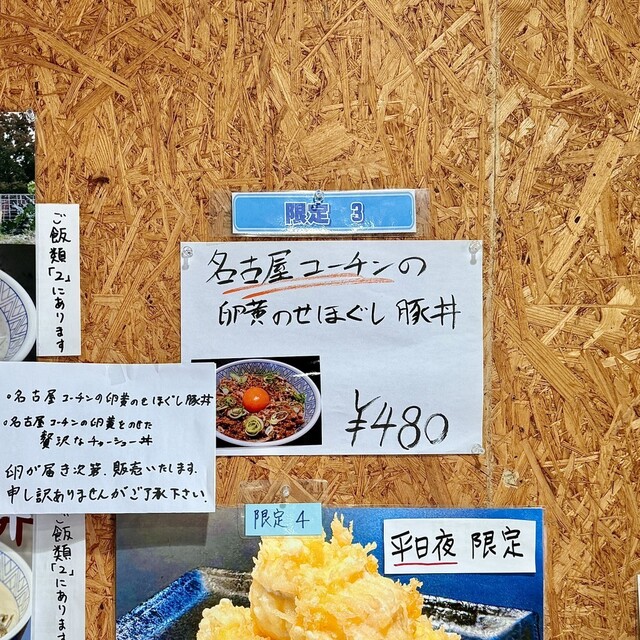 限定 3
名古屋コーチンの
卵黄のせほぐし豚丼
¥480
ご飯類「2」にあります
・名古屋コーチンの卵黄のせほぐし豚丼
・名古屋コーチンの卵黄をのせた
贅沢なチャーシュー丼
卵が届き次第、販売いたします。
申し訳ありませんがご了承下さい。
限定 4
平日夜 限定
ご飯類「2」にあります